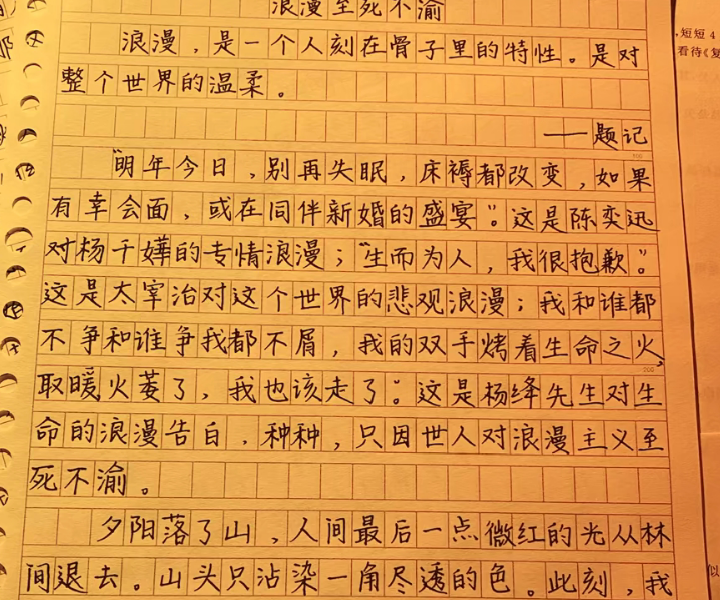 浪漫至死不渝
浪漫，是一个人刻在骨子里的特性。是对
整个世界的温柔。
——题记
“明年今日，别再失眠，床褥都改变，如果
有幸会面，或在同伴新婚的盛宴”。这是陈奕迅
对杨千嬅的专情浪漫；“生而为人，我很抱歉”。
这是太宰治对这个世界的悲观浪漫；我和谁都
不争和谁争我都不屑，我的双手烤着生命之火，
取暖火萎了，我也该走了”。这是杨绛先生对生
命的浪漫告白，种种，只因世人对浪漫主义至
死不渝。
夕阳落了山，人间最后一点微红的光从林
间退去。山头只沾染一角尽透的色。此刻，我
200
短短4
看待《复